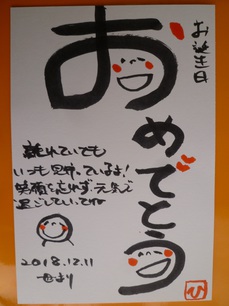 お誕生日
おめでとう
離れていても
いつも見守っているよ!
笑顔を忘れず元気で
過ごしていてね
2018.12.11
母より
ひ